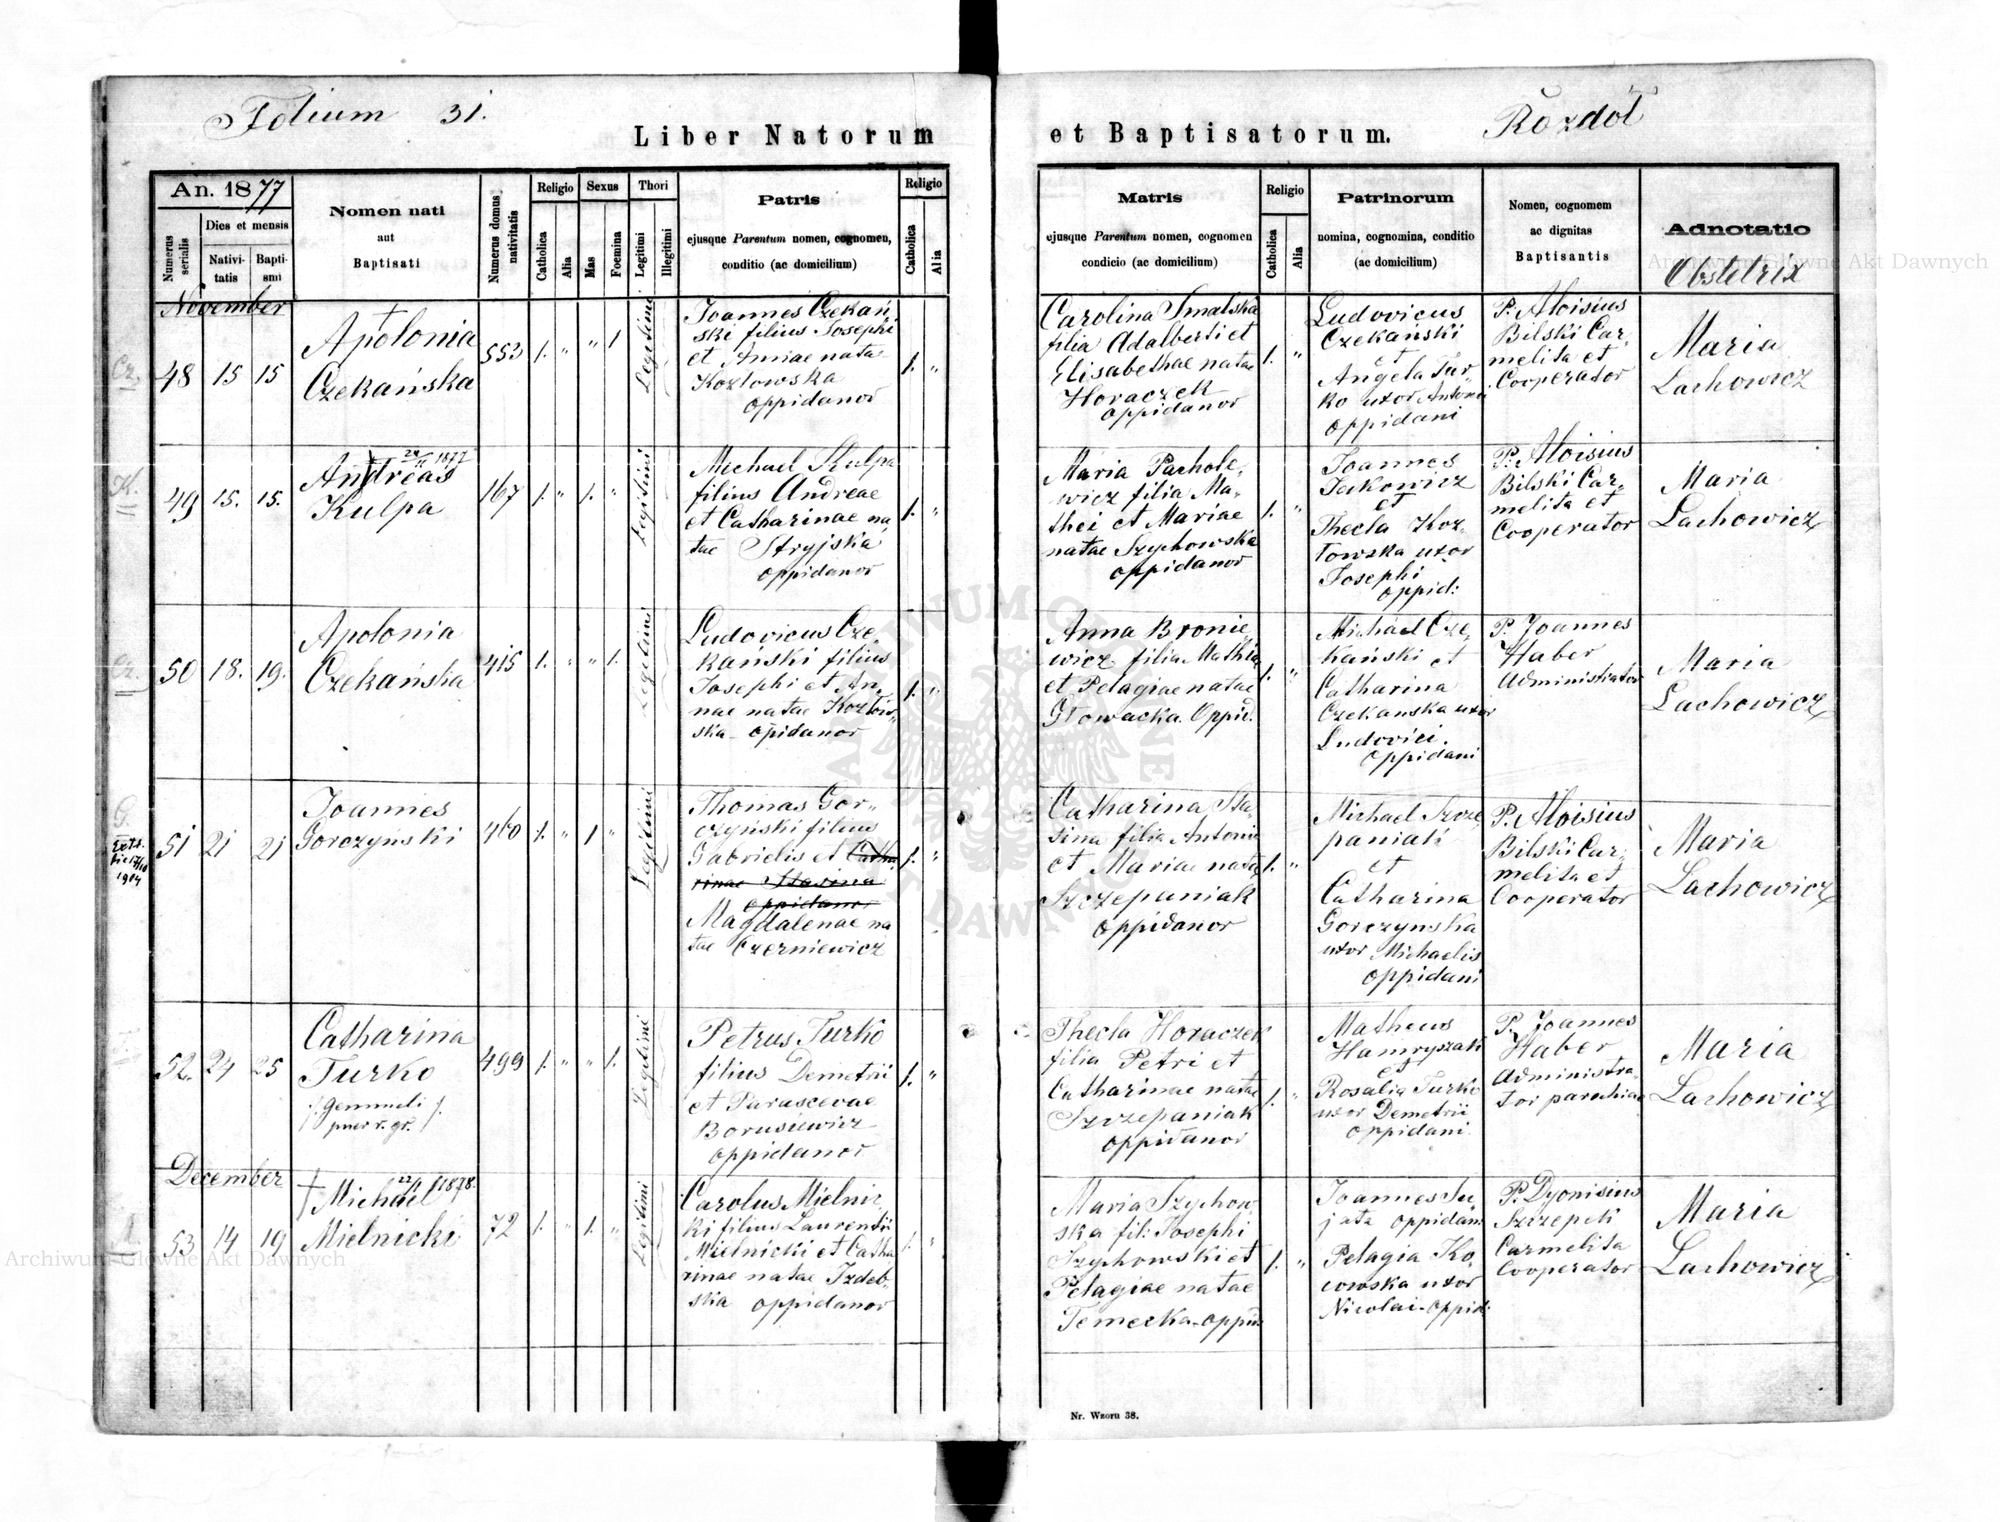 Folium 31.
Rozdół
Liber Natorum
et Baptisatorum.
An. 1877
Numerus serialis
Dies et mensis
Nativi-
tatis
Bapti-
smi
Nomen nati
aut
Baptisati
Numerus domus
nativitatis
Religio
Catholica
Alia
Sexus
Mas
Foemina
Thori
Legitimi
Illegitimi
Patris
ejusque Parentum nomen, cognomen,
conditio (ac domicilium)
Religio
Catholica
Alia
Matris
ejusque Parentum nomen, cognomen
condicio (ac domicilium)
Religio
Catholica
Alia
Patrinorum
nomina, cognomina, conditio
(ac domicilium)
Nomen, cognomem
ac dignitas
Baptisantis
Adnotatio
Obstetrix
November
Cz.
48
15
15
Apolonia
Czekańska
553
1.
"
"
1
Legitimi
Joannes Czekań,
ski filius Josephi
et Annae natae
Kozłowska
oppidanor
1.
"
Carolina Smalska
filia Adalberti et
Elisabethae natae
Horaczek
oppidanor
1.
"
Ludovicus
Czekański
et
Angela Tur-
ko uxor Antonii
oppidani
P. Aloisius
Bilski Car-
melita et
Cooperator
Maria
Lachowicz
K.
49
15.
15.
24/11 1877
Andreas
Kulpa
167
1.
"
1.
"
Legitimi
Michael Kulpa
filius Andreae
et Catharinae na,
tae Stryjska
oppidanor
1.
"
Maria Pachole,
wicz filia Ma-
thei et Mariae
natae Szychowska
oppidanor
1.
"
Joannes
Jackowicz
et
Thecla Koz-
łowska uxor
Josephi
oppid:
P. Aloisius
Bilski Car-
melita et
Cooperator
Maria
Lachowicz
Cz.
50
18.
19.
Apolonia
Czekańska
415
1.
"
"
1.
Legitimi
Ludovicus Cze,
kański filius
Josephi et An,
nae natae Kozłow,
ska - opidanor
1.
"
Anna Bronie,
wicz filia Mathiae
et Pelagiae natae
Głowacka. Oppid.
1.
"
Michael Cze,
kański et
Catharina
Czekanska uxor
Ludovici.
oppidani
P. Joannes
Haber
Administrator
Maria
Lachowicz
G.
Extr.
die 17/10
1904
51
21
21
Joannes
Gorczyński
460
1.
"
1
"
Legitimi
Thomas Gor-
czyński filius
Gabrielis et Catha,
rinae Stasina
oppidanor
Magdalenae na
tae Czerniewicz
1.
"
Catharina Sta,
sina filia Antonii
et Mariae natae
Szczepaniak
oppidanor
1.
"
Michael Szcze,
paniak
et
Catharina
Gorczynska
uxor Michaelis
oppidani
P. Aloisius
Bilski Car-
melita et
Cooperator
Maria
Lachowicz
52.
24
25
Catharina
Turko
/. gemmeli
puer r. gr. /.
499
1.
"
"
1.
Legitimi
Petrus Turko
filius Demetrii
et Parascevae
Borusiewicz
oppidanor
1.
"
Thecla Horaczek
filia Petri et
Catharinae natae
Szczepaniak
oppidanor
1.
"
Matheus
Hamryszak
et
Rosalia Turko
uxor Demetrii
oppidani
P. Joannes
Haber
Administra,
tor parochiae
Maria
Lachowicz
December
53
14
19
† Michael 22/1 1878.
Mielnicki
72
1.
"
1.
"
Legitimi
Carolus Mielnic
ki filius Laurentii
Mielnicki et Catha
rinae natae Izdeb,
ska oppidanor
1.
"
Maria Szychow,
ska fil: Josephi
Szychowski et
Pelagiae natae
Temecka - oppid:
1.
"
Joannes
oppidan:
Pelagia Ko,
cowska uxor
Nicolai - oppid:
P. Dyonisius
Szczepek
Carmelita
Cooperator
Maria
Lachowicz
Nr. Wzoru 38.
ARCHIWUM GŁÓWNE AKT DAWNYCH
Archiwum Główne Akt Dawnych
Archiwum Główne Akt Dawnych